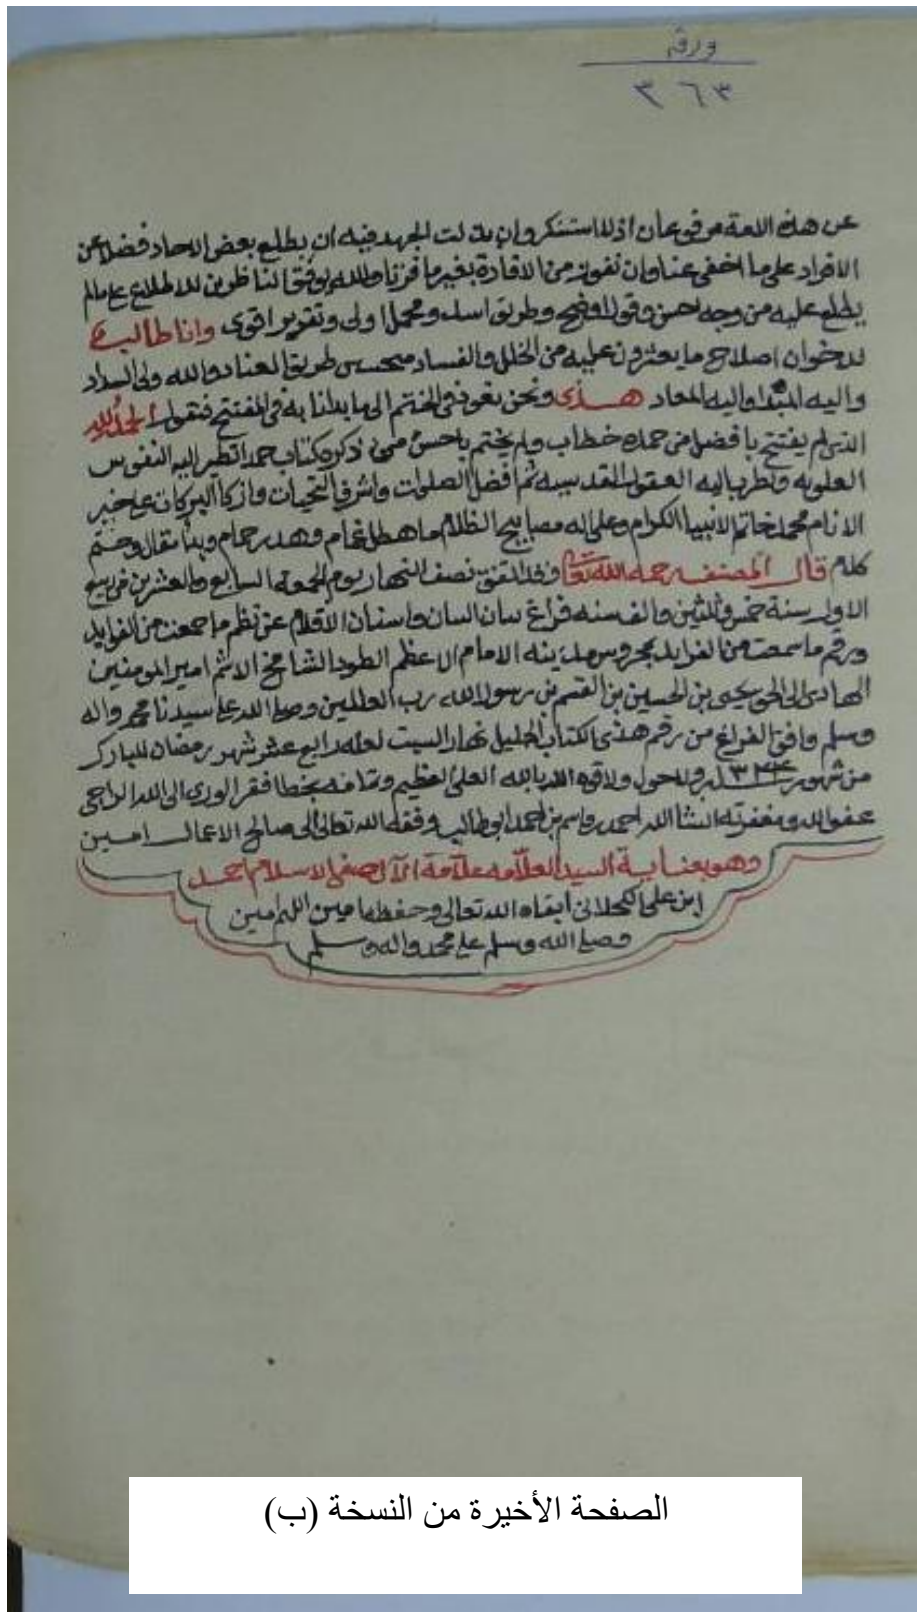 ورقه
٣٦٣
عن هذه اللمعة مرفوعان اذ لا استنكر وان بذلت الجهد فيه ان يطلع بعض الاحاد فضلا عن
الافراد على ما اختفى عنا وان تفوز من الافادة بغير ما فزنا والله يوفق الناظرين للاطلاع على مالم
يطلع عليه من وجه احسن وقول اوضح وطريق اسد ومحمل اولى وتقرير اقوى وانا طالب
للاخوان اصلاح ما يعثرون عليه من الخلل والفساد طريق العناد والله ولى السداد
واليه المبدا واليه المعاد هذى ونحن نعود فى المختتم الى ما بدانا به فى المفتتح فنقول الحمد لله
الذى لم يفتتح بافضل من حمده خطاب ولم يختتم باحسن من ذكره كتاب حمدا تطير اليه النفوس
العلويه وتطرب اليه العقول القدسيه ثم افضل الصلوات واشرف التحيات وازكا البركات على خير
الانام محمد خاتم الانبيا الكرام وعلى اله مصابيح الظلام ما هطل غمام وهدر حمام وبدا مقال وختم
كلام قال المصنف رحمه الله تعالى وقد اتفق نصف النهار يوم الجمعه السابع والعشرين من ربيع
الاول سنة خمس وثلثين والف سنه فراغ بنان البيان واسنان الاقلام عن نظم ما جمعت من الفوايد
ورقم ما سمعت من الفرايد بمحروس مدينه الامام الاعظم الطود الشامخ الاشم امير المومنين
الهادى الى الحق يحيى بن الحسين بن القسم بن رسول الله رب العالمين وصلى الله على سيدنا محمد واله
وسلم وافق الفراغ من رقم هذى الكتاب الجليل نهار السبت لعله رابع عشر شهر رمضان المبارك
من شهور ولا حول ولا قوه الا بالله العلى العظيم بخط افقر الورى الى الله الراجى
عفو الله ومغفرته انشا الله احمد بن قاسم بن احمد ابو طالب وفقه الله تعالى الى صالح الاعمال امين
وهو بعناية السيد العلامه علامة الآل صفى الاسلام احمد
ابن على الكحلانى ابقاه الله تعالى وحفظه امين اللهم امين
وصلى الله وسلم على محمد واله وسلم
الصفحة الأخيرة من النسخة (ب)